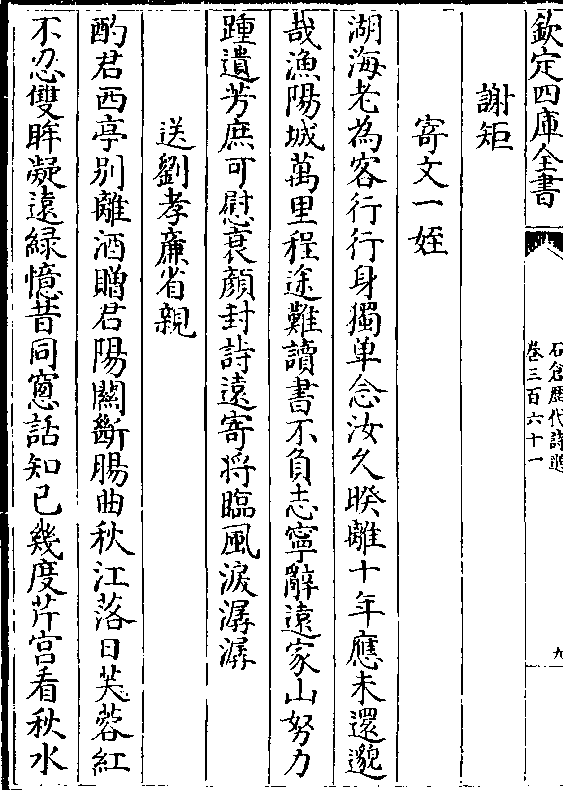 欽定四庫全書
石倉歴代詩選
卷三百六十一
九
謝矩
寄文一姪
湖海老為客行行身獨单念汝久暌離十年應未還邈
哉漁陽城萬里程途難讀書不負志寧辭遠家山努力
踵遺芳庶可慰衰顔封詩遠寄將臨風淚潺潺
送劉孝亷省親
酌君西亭别離酒贈君陽關斷腸曲秋江落日芙蓉紅
不忍雙眸凝遠緑憶昔同窻話知已幾度芹宫看秋水